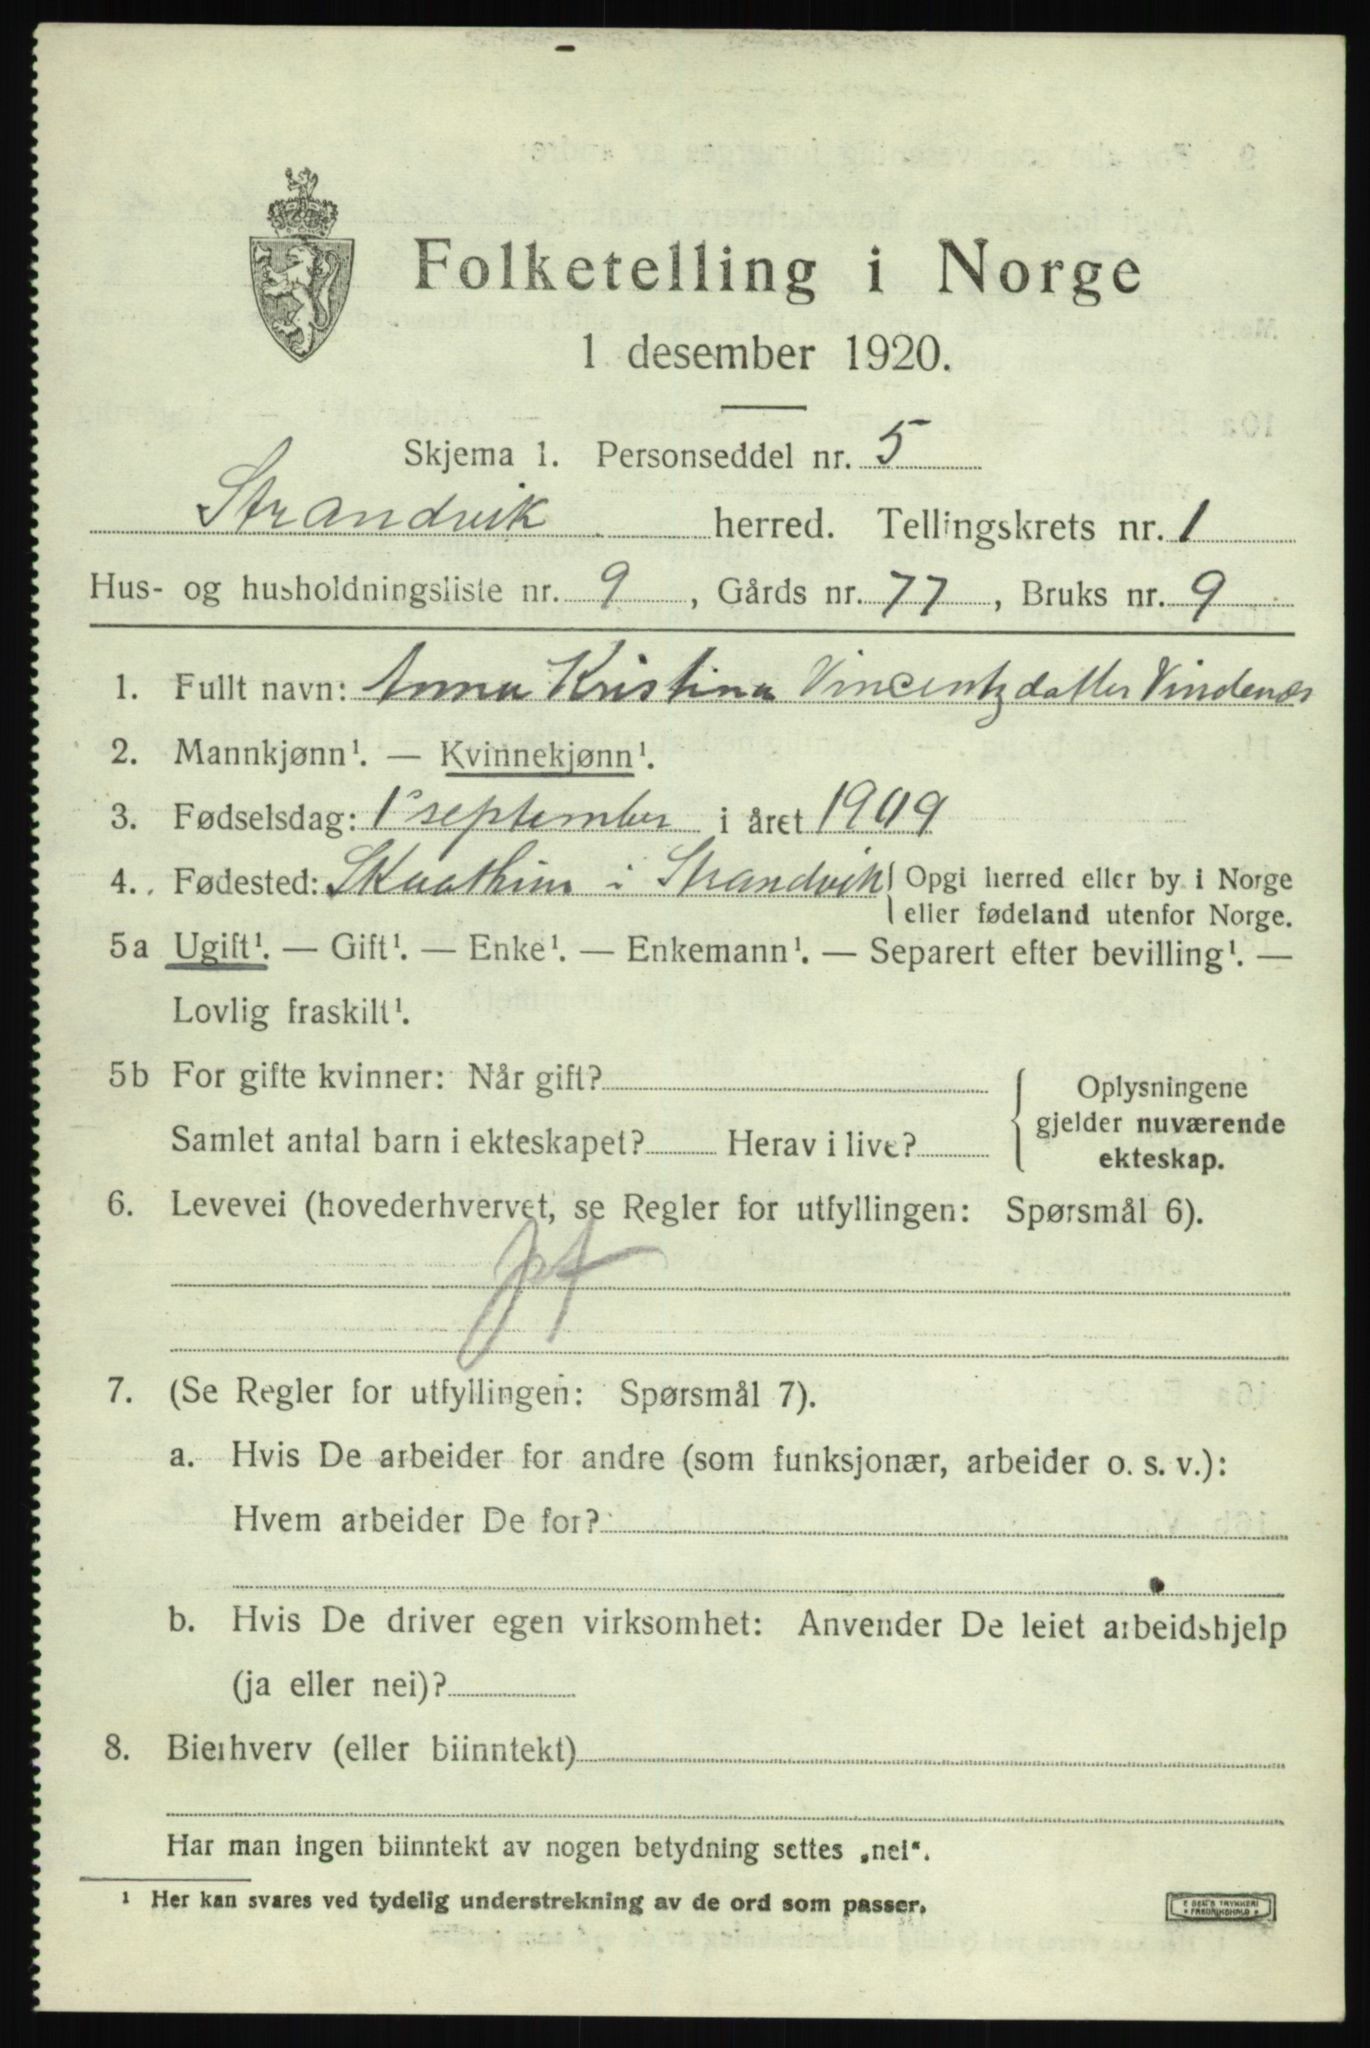 Folketelling i Norge
1 desember 1920.
Skjema 1. Personseddel nr. 5
Strandvik herred. Tellingskrets nr. 1
Hus- og husholdningsliste nr. 9, Gårds nr. 77, Bruks nr. 9
1. Fullt navn: Anna Kristina Vincentzdatter Vindenæs
2. Mannkjønn¹. — Kvinnekjønn¹.
3. Fødselsdag: 1 september i året 1909
4. Fødested: i Strandvik { Opgi herred eller by i Norge
eller fødeland utenfor Norge.
5a Ugift¹. — Gift¹. — Enke¹. — Enkemann¹. — Separert efter bevilling¹. —
Lovlig fraskilt¹.
5b For gifte kvinner: Når gift?
Samlet antal barn i ekteskapet? Herav i live?
{ Oplysningene
gjelder nuværende
ekteskap.
6. Levevei (hovederhvervet, se Regler for utfyllingen: Spørsmål 6).
7. (Se Regler for utfyllingen: Spørsmål 7).
a. Hvis De arbeider for andre (som funksjonær, arbeider o. s. v.):
Hvem arbeider De for?
b. Hvis De driver egen virksomhet: Anvender De leiet arbeidshjelp
(ja eller nei)?
8. Bierhverv (eller biinntekt)
Har man ingen biinntekt av nogen betydning settes „nei“.
¹ Her kan svares ved tydelig understrekning av de ord som passer.